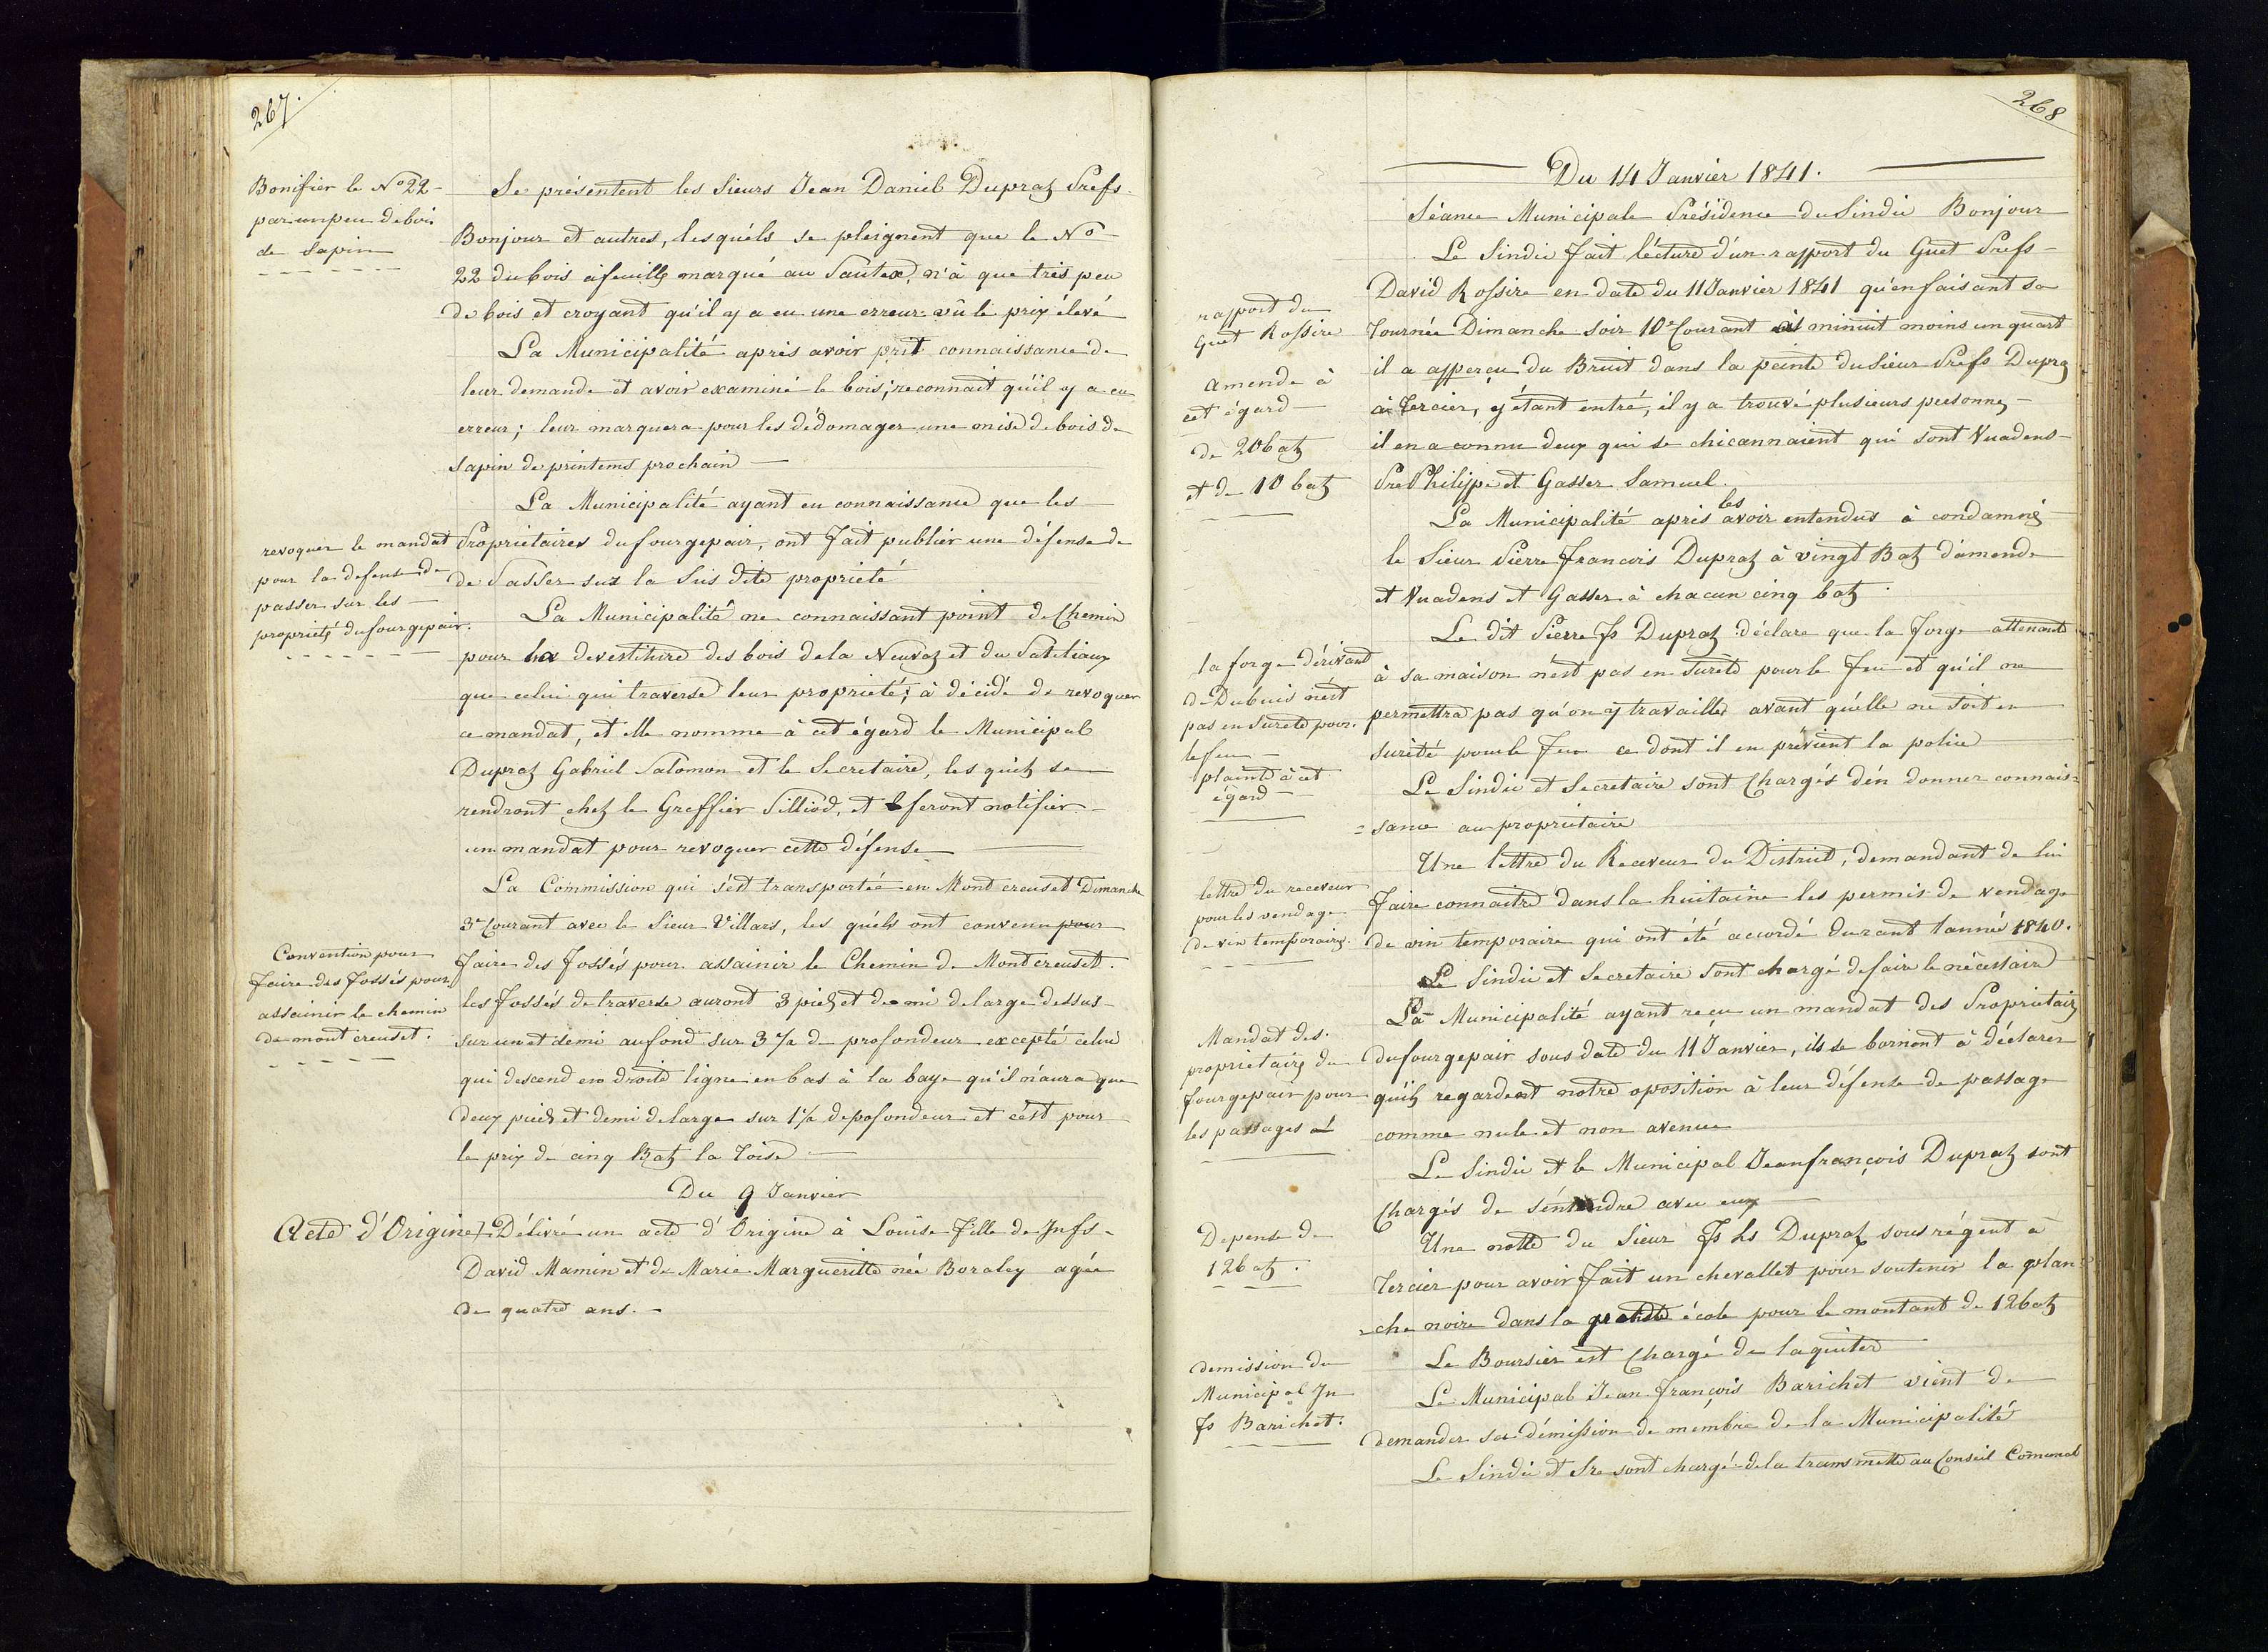 267.
Bonifier le No 22
par un peu de bois
de Sapin
Se présentent les Sieurs Jean Daniel Dupraz Prefs
Bonjour et autres, lesquéls se pleignent que le No
22 du bois à feuille marqué au Sautex, n'à que très peu
de bois et croyant qu'il y a eu une erreur vû le prix élevé
La Municipalité aprés avoir prit connaissance de
leur demande et avoir examiné le bois; reconnait qu'il y a eu
erreur; leur marquera pour les dédomager une mise de bois de
sapin de printems prochain
La Municipalité ayant eu connaissance que les
revoquer le mandat
pour la defense de
passer sur les
proprietés du fourgepair.
Proprietaires du fourgepair, ont fait publier une défense de
de Passer sur la Sus dite proprieté
La Municipalité ne connaissant point de Chemin
pour la devestiture des bois de la Neuvaz et du
que celui qui traverse leur proprieté; à décidé de revoquer
ce mandat, et elle nomme à cet égard le Municipal
Dupraz Gabriel Salomon et le Secretaire, les quélz se
rendront chez le Greffier Pilliod, et feront notifier
un mandat pour revoquer cette défense
La Commission qui s'est transportée en Mont creuset Dimanche
3e Courant avec le Sieur Villars, les quéls ont convenu pour
Convention pour
faire des fossés pour
assainir le chemin
de mont creuset.
faire des fossés pour assainir le Chemin de Mont creuset.
les fossés de traverse auront 3 piez et demi de large dessus
sur un et demi au fond sur 3 1/2 de profondeur excepté celui
qui descend en droite ligne en bas à la baye qu'il n'aura que
deux pieds et demi de large sur 1 1/2 de pofondeur et c'est pour
le prix de cinq Batz la Toise
Du 9 Janvier
Acte d'Origine
Délivré un acte d'Origine à Louise fille de Jn fs
David Mamin et de Marie Margueritte née Boraley agée
de quatre ans.
268
Du 14 Janvier 1841.
Séance Municipale Présidence du Sindic Bonjour
Le Sindic fait lécture d'un rapport du Guet Prefs
rapport du
Guet Rossire
David Rossire en date du 11 Janvier 1841 qu'en faisant sa
tournée Dimanche soir 10e Courant à minuit moins un quart
il a apperçu du Bruit dans la peinte du Sieur Prefs Dupraz
amende à
cet égard
de 20 batz
et de 10 batz
à Tercier, y étant entré, il y a trouvé plusieurs personnes
il en a connu deux qui se chicannaient qui sont Vuadens
Pre Philippe et Gasser Samuel.
La Municipalité aprés les avoir entendus à condamné
le Sieur Pierre francois Dupraz à vingt Batz d'amende
et Vuadens et Gasser à chacun cinq batz
Le dit Pierre fs Dupraz déclare que la forge attenante
la forge dérivant
de Dubuis n'ést
pas en sureté pour
le feu
plainte à cet
égard
à sa maison n'ést pas en sureté pour le feu et qu'il ne
permettra pas qu'on y travaille avant qu'élle ne soit en
sureté pour le feu ce dont il en prévient la police
Le Sindic et Secretaire sont Chargés d'én donner connais=
=sance au proprietaire
Une lettre du Receveur du District, demandant de lui
lettre du receveur
pour les vendage
de vin temporaire.
faire connaitre dans la huitaine les permis de vendage
de vin temporaire qui ont été accordé durant l'année 1840.
Le Sindic et Secretaire sont chargé de faire le nécéssaire
La Municipalité ayant reçu un mandat des Proprietairs
Mandat des
proprietairs du
fourgepair pour
les passages
du fourgepair sous date du 11 Janvier, ils se bornent à déclarer
qu'ils regardent notre oposition à leur défense de passage
comme nule et non avenue
Le Sindic et le Municipal Jean françois Dupraz sont
Chargés de s'éntendre avec eux
Depense de
12 batz.
Une notte du Sieur Fs Ls Dupraz sous régent à
Tercier pour avoir fait un chevallet pour soutenir la plan=
=che noire dans la grande école pour le montant de 12 batz
Le Boursier est Chargé de l'aquiter
demission du
Municipal Jn
fs Barichet.
Le Municipal Jean françois Barichet vient de
demander sa démission de membre de la Municipalité
Le Sindic et Sre sont chargé de la transmettre au Conseil Comunal